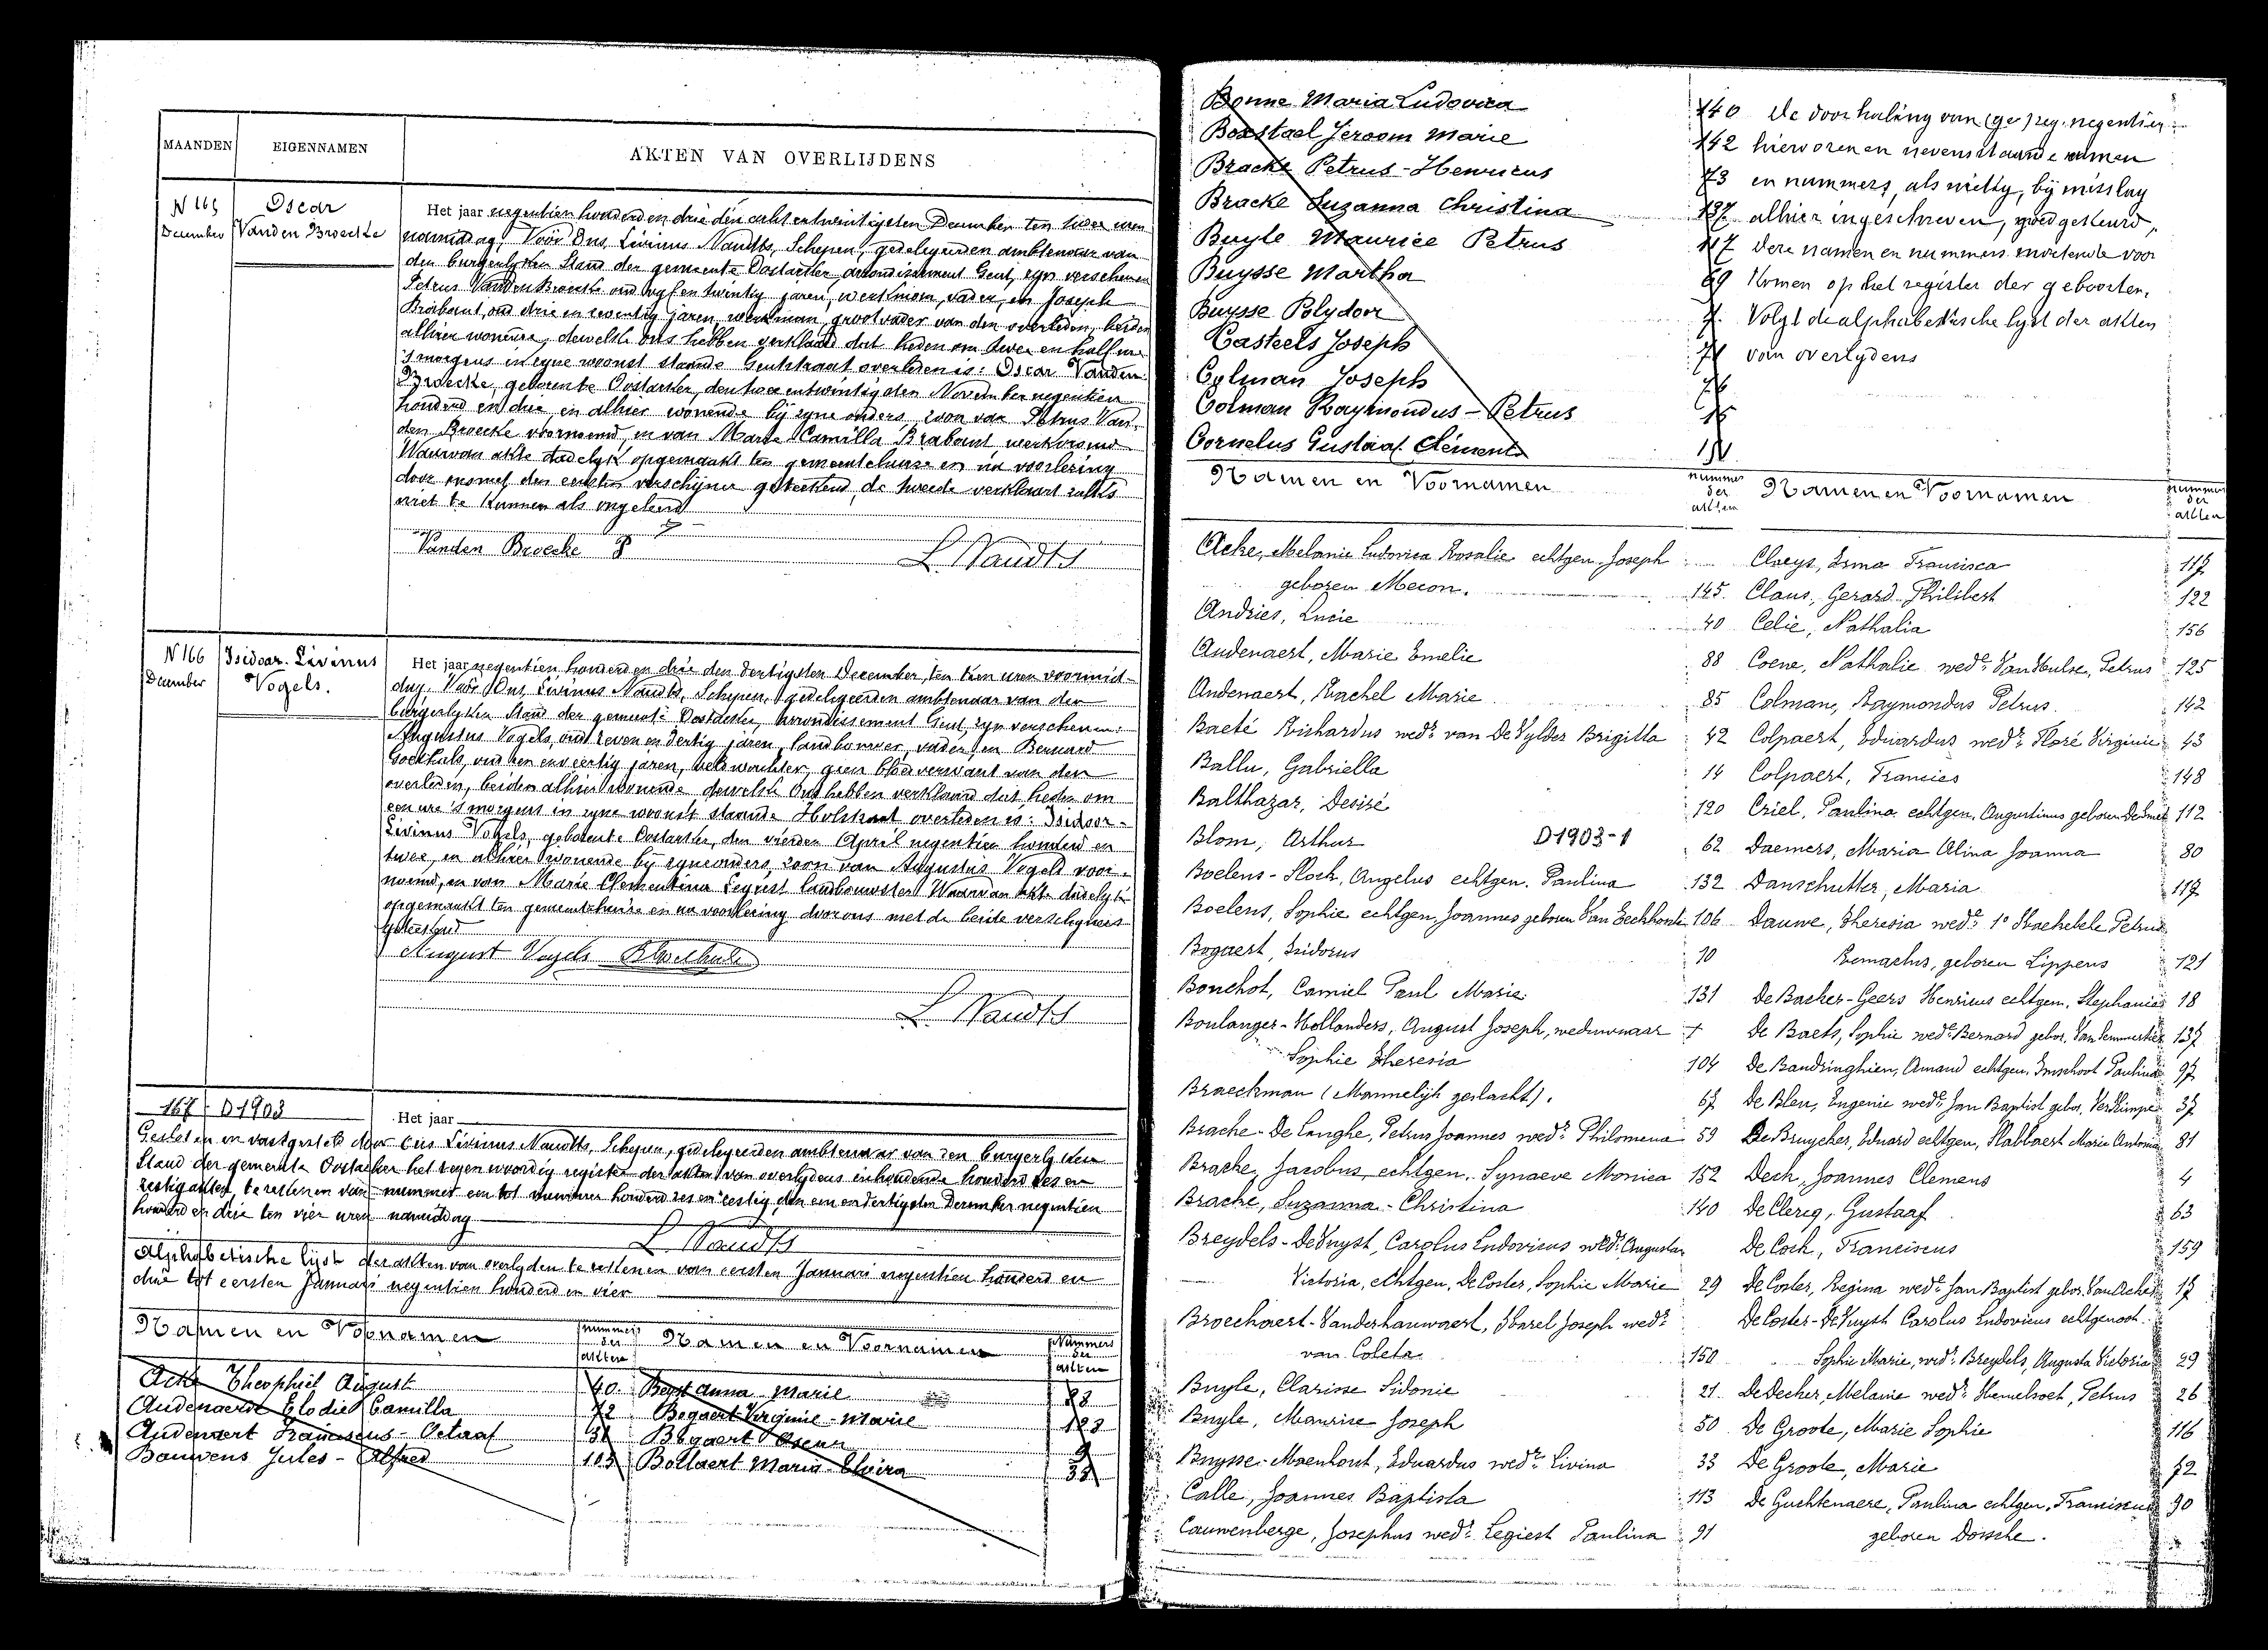 MAANDEN EIGENNAMEN AKTEN VAN OVERLIJDENS
N 165 Oscar
December Vanden Broecke
Het jaar negentien honderd en drie den acht entwintigsten December ten twee uren
namiddag, Voor Ons, Livinus Naudts, Schepen, gedelegeerden ambtenaar van
den burgerlyken Stand der gemeente Oostacker, arrondissement Gent, zyn verschenen
Petrus Vanden Broecke oud vyf en twintig jaren, werkman, vader, en Joseph
Brabant oud drie en zeventig jaren, werkman, grootvader van den overleden, beiden
alhier wonende, dewelke ons hebben verklaard dat heden om twee en half ure
's morgens in zyne woonst staande Gentstraat overleden is: Oscar Vanden
Broecke, geboren te Oostacker, den twee entwintigsten November negentien
honderd en drie en alhier wonende bij zyne ouders, zoon van Petrus Van
den Broecke voornoemd, en van Marie Camilla Brabant werkvrouw
Waarvan akte dadelyk opgemaakt ten gemeentehuize en na voorlezing
door ons met den eersten verschijner geteekend, de tweede verklaart zulks
niet te kunnen als ongeleerd
Vanden Broecke P
L. Naudts
N 166 Isidoor Livinus
December Vogels.
Het jaar negentien honderd en drie den dertigsten December, ten tien uren voormid-
dag. Voor Ons, Livinus Naudts, Schepen, gedelegeerden ambtenaar van den
burgerlyken Stand der gemeente Oostacker, arrondissement Gent, zyn verschenen:
Augustus Vogels, oud zeven en dertig jaren, landbouwer, vader, en Bernard
Goethals, oud een en veertig jaren, veldwachter, geen bloedverwant van den
overleden, beiden alhier wonende dewelke Ons hebben verklaard dat heden om
een ure 's morgens in zyne woonst staande Holstraat overleden is: Isidoor-
Livinus Vogels, geboren te Oostacker, den vierden April negentien honderd en
twee, en alhier wonende bij zyne ouders, zoon van Augustus Vogels voor-
noemd, en van Marie Clementina Legiest landbouwster Waarvan akte dadelyk
opgemaakt ten gemeentehuize en na voorlezing door ons met de beide verschijners
geteekend
August Vogels B Goethals
L. Naudts
167 D 1903
Het jaar
Gesloten en vastgesteld door Ons Livinus Naudts, Schepen, gedelegeerden ambtenaar van den burgerlyken
Stand der gemeente Oostacker het tegenwoordig register der akten van overlydens inhoudende honderd zes en
zestig akten, te rekenen van nummer een tot nummer honderd zes en zestig, den een en dertigsten December negentien
honderd en drie ten vier uren namiddag
L. Naudts
Alphabetische lyst der akten van overlyden te rekenen van eersten Januari negentien honderd en
drie tot eersten Januari negentien honderd en vier
Namen en Voornamen nummers der akten Namen en Voornamen Nummers der akten
Acke Theophiel August 40 Beyst Anna Marie 88
Audenaerde Elodie Camilla 72 Bogaert Virginie - Marie
Audenaert Franciscus - Octaaf Bogaert
Bauwens Jules - Alfred 103 Bollaert Maria Elvira
Bonne Maria Ludovica 140
Boxstael Jeroom Marie 142
Bracke Petrus - Henricus 73
Bracke Suzanna Christina 137
Buyle Maurice Petrus 117
Buysse Martha 69
Buysse Polydoor
Casteels Joseph
Colman Joseph
Colman Raymondus - Petrus
Cornelus Gustaaf Clement
De doorhaling van negentien
hierboven en nevenstaande namen
en nummers, als nietig, bij misslag
alhier ingeschreven, goedgekeurd,
deze namen en nummers moetende voor
komen op het register der geboorten.
Volgt de alphabetische lyst der akten
van overlydens
Namen en Voornamen nummer der akten Namen en Voornamen nummers der akten
Acke, Melanie Ludovica Rosalie echtgen. Joseph
geboren Mecon. 145
Andries, Lucie 40
Audenaert, Marie Emelie 88
Audenaert, Rachel Marie 85
Baeté Richardus wedr van De Vylder Brigitta 42
Ballu, Gabriella 14
Balthazar, Desiré 120
Blom, Arthur D1903-1 62
Boelens - Stock, Angelus echtgen. Paulina 132
Boelens, Sophie echtgen. Joannes geboren Van Eeckhoute 106
Bogaert, Isidorus 10
Bouchot, Camiel Paul Marie 131
Boulanger - Hollanders, August Joseph, weduwnaar
Sophie Theresia 104
Braeckman (Mannelijk geslacht). 67
Bracke - De Langhe, Petrus Joannes wedr Philomena 59
Bracke, Jacobus, echtgen. Synaeve Monica 152
Bracke, Suzanna - Christina 140
Breydels - DeKuyst, Carolus Ludovicus wedr Augusta
Victoria, echtgen. DeCoster, Sophie Marie 29
Broeckaert - Vanderhauwaert, Karel Joseph wedr
van Coleta 150
Buyle, Clarisse Sidonie 21
Buyle, Maurice Joseph 50
Buysse - Moenhout, Eduardus wedr Livina 33
Calle, Joannes Baptista 113
Cauwenberge, Josephus wedr Legiest Paulina 91
Claeys, Irma Francisca 117
Claus, Gerard Philibert 122
Celie, Nathalia 156
Coene, Nathalie wede VanHulse, Petrus 125
Colman, Raymondus Petrus 142
Colpaert, Eduardus wedr Floré Virginie 43
Colpaert, Francies 148
Criel, Paulina echtgen. Augustinus geboren DeSmet 112
Daemers, Maria Alina Joanna 80
Danschutter, Maria 119
Dauwe, Theresia wede 1° Petrus
Remachus, geboren Lippens 121
DeBacker - Geers Henricus echtgen. Stephanie 18
De Baets, Sophie wede Bernard gebor. 137
De Baudringhien, Amand echtgen. Imschoot Paulina 97
De Bleu, Eugenie wede Jan Baptist gebor. 37
DeBruycker, Eduard echtgen. Slabbaert Marie Antonia 81
Deck, Joannes Clemens 4
DeClercq, Gustaaf 63
DeCock, Franciscus 159
DeCoster, Regina wede Jan Baptist gebor. 17
DeCoster - DeKuyst Carolus Ludovicus echtgenoot
Sophie Marie, wedr Breydels, Augusta Victoria 29
DeDecker, Melanie wede Hemelsoet, Petrus 26
De Groote, Marie Sophie 116
De Groote, Marie 72
De Guchtenaere, Paulina echtgen. Franciscus 90
geboren Dossche.